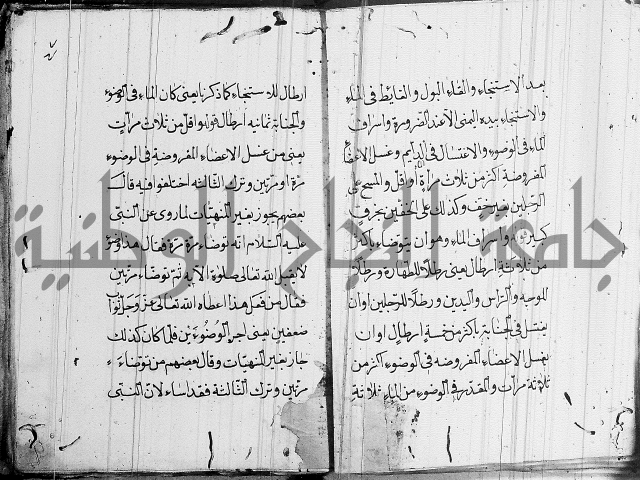 بعد الاستنجاء والقاء البول والغايط فى الماء
والاستنجاء بيده اليمنى الا عند الضرورة واسراف
الماء فى الوضوء والاغتسال فى الدايم وغسل الاعضاء
المفروضة اكثر من ثلاث مرات او اقل والمسح على
الرجلين بغير خف وكذلك على الخفين بخرق
كبيرة واسراف الماء وهو ان يتوضاء باكثر
من ثلاثة ارطال يعنى رطلا للطهارة ورطلا
للوجه والراس واليدين ورطلا للرجلين او ان
يغتسل فى الجنابة باكثر من خمسة ارطال او ان
يغسل الاعضاء المفروضه فى الوضوء اكثر من
ثلاثة مرات والمقدر فى الوضوء من الماء ثلاثة
ارطال للاستنجاء كما ذكرنا يعنى كان الماء فى الوضوء
والجنابة ثمانيه ارطال قوله او اقل من ثلاث مرات
يعنى من غسل الاعضاء المفروضة فى الوضوء
مرة او مرتين وترك الثالثه اختلفوا فيه قال
بعضهم يجوز بغير المنهيات لما روى عن النبى
عليه السلام انه توضاء مرة مرة فقال هذا وضوء
لا يقبل الله تعالى صلوة الا به ثم توضاء مرتين
فقال من فعل هذا اعطاه الله تعالى عز وجل ثوابا
ضعفين يعنى اجر الوضوءين فلما كان كذلك
جاز بغير المنهيات وقال بعضهم من توضاء
مرتين وترك الثالثة فقد اساء لان النبى
جامعة النجاح الوطنية